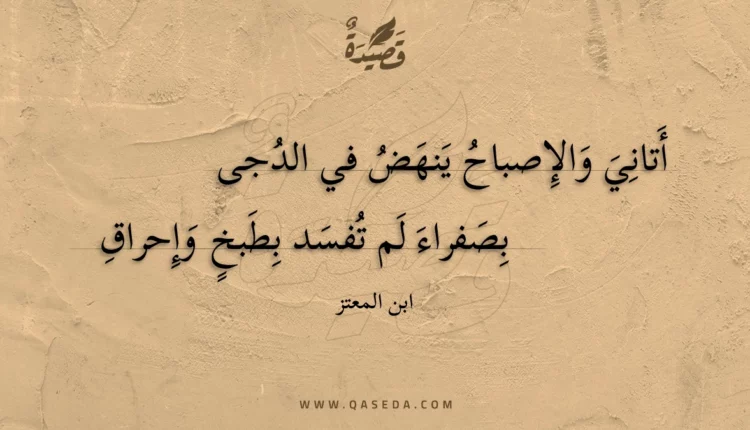 قَصِيدَةٌ
أَتانِيَ وَالإِصباحُ يَنهَضُ في الدُجى
بِصَفراءَ لَم تُفسَد بِطَبخٍ وَإِحراقِ
ابن المعتز
WWW.QASEDA.COM